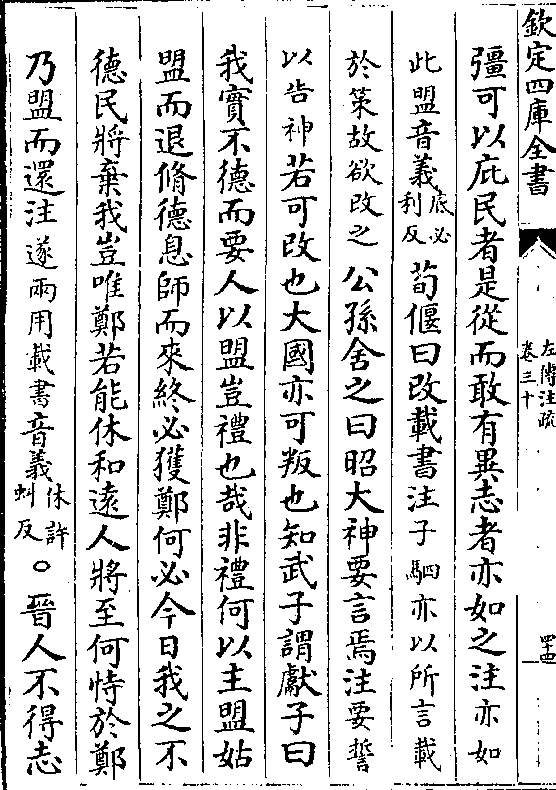 欽定四庫全書
左傳注疏
卷三十
四十四
彊可以庇民者是從而敢有異志者亦如之注亦如
此盟音義庇必利反荀偃曰改載書注子駟亦以所言載
於策故欲改之公孫舍之曰昭大神要言焉注要誓
以告神若可改也大國亦可叛也知武子謂獻子曰
我實不德而要人以盟豈禮也哉非禮何以主盟姑
盟而退脩德息師而來終必獲鄭何必今日我之不
德民將棄我豈唯鄭若能休和逺人將至何恃於鄭
乃盟而還注遂兩用載書音義休許虯反○晉人不得志